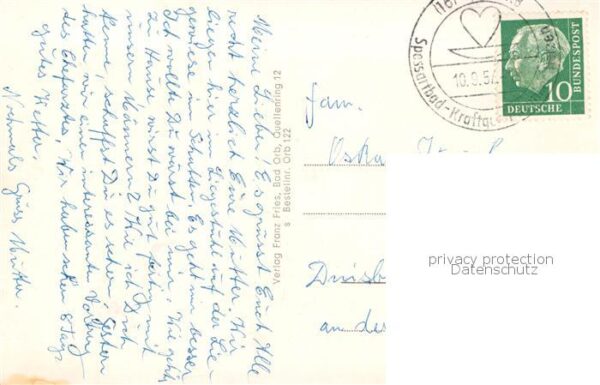 Meine Liebe! Es grüsst Euch Alle
recht herzlich Eure Mutter. Wir
liegen hier im Liegestuhl auf der Lie-
gewiese im Schatten. Es geht mir besser
Ich wollte Du wärst bei mir. Wie geht's
zu Hause, wirst Du gut fertig mit
unseren Männern? Wie ich Dich
kenne, schaffst Du es schon. Gestern
hatten wir einen interessanten Vortrag
des Chefarztes. Wir haben schon 8 Tage
gutes Wetter.
Nochmals Gruss Mutter.
Verlag Franz Fries, Bad Orb, Quellenring 12
s Bestellnr. Orb 122
Fam.
Oska
Duisb
an der
Spessartbad-Kraftque
10
DEUTSCHE
BUNDESPOST
privacy protection
Datenschutz